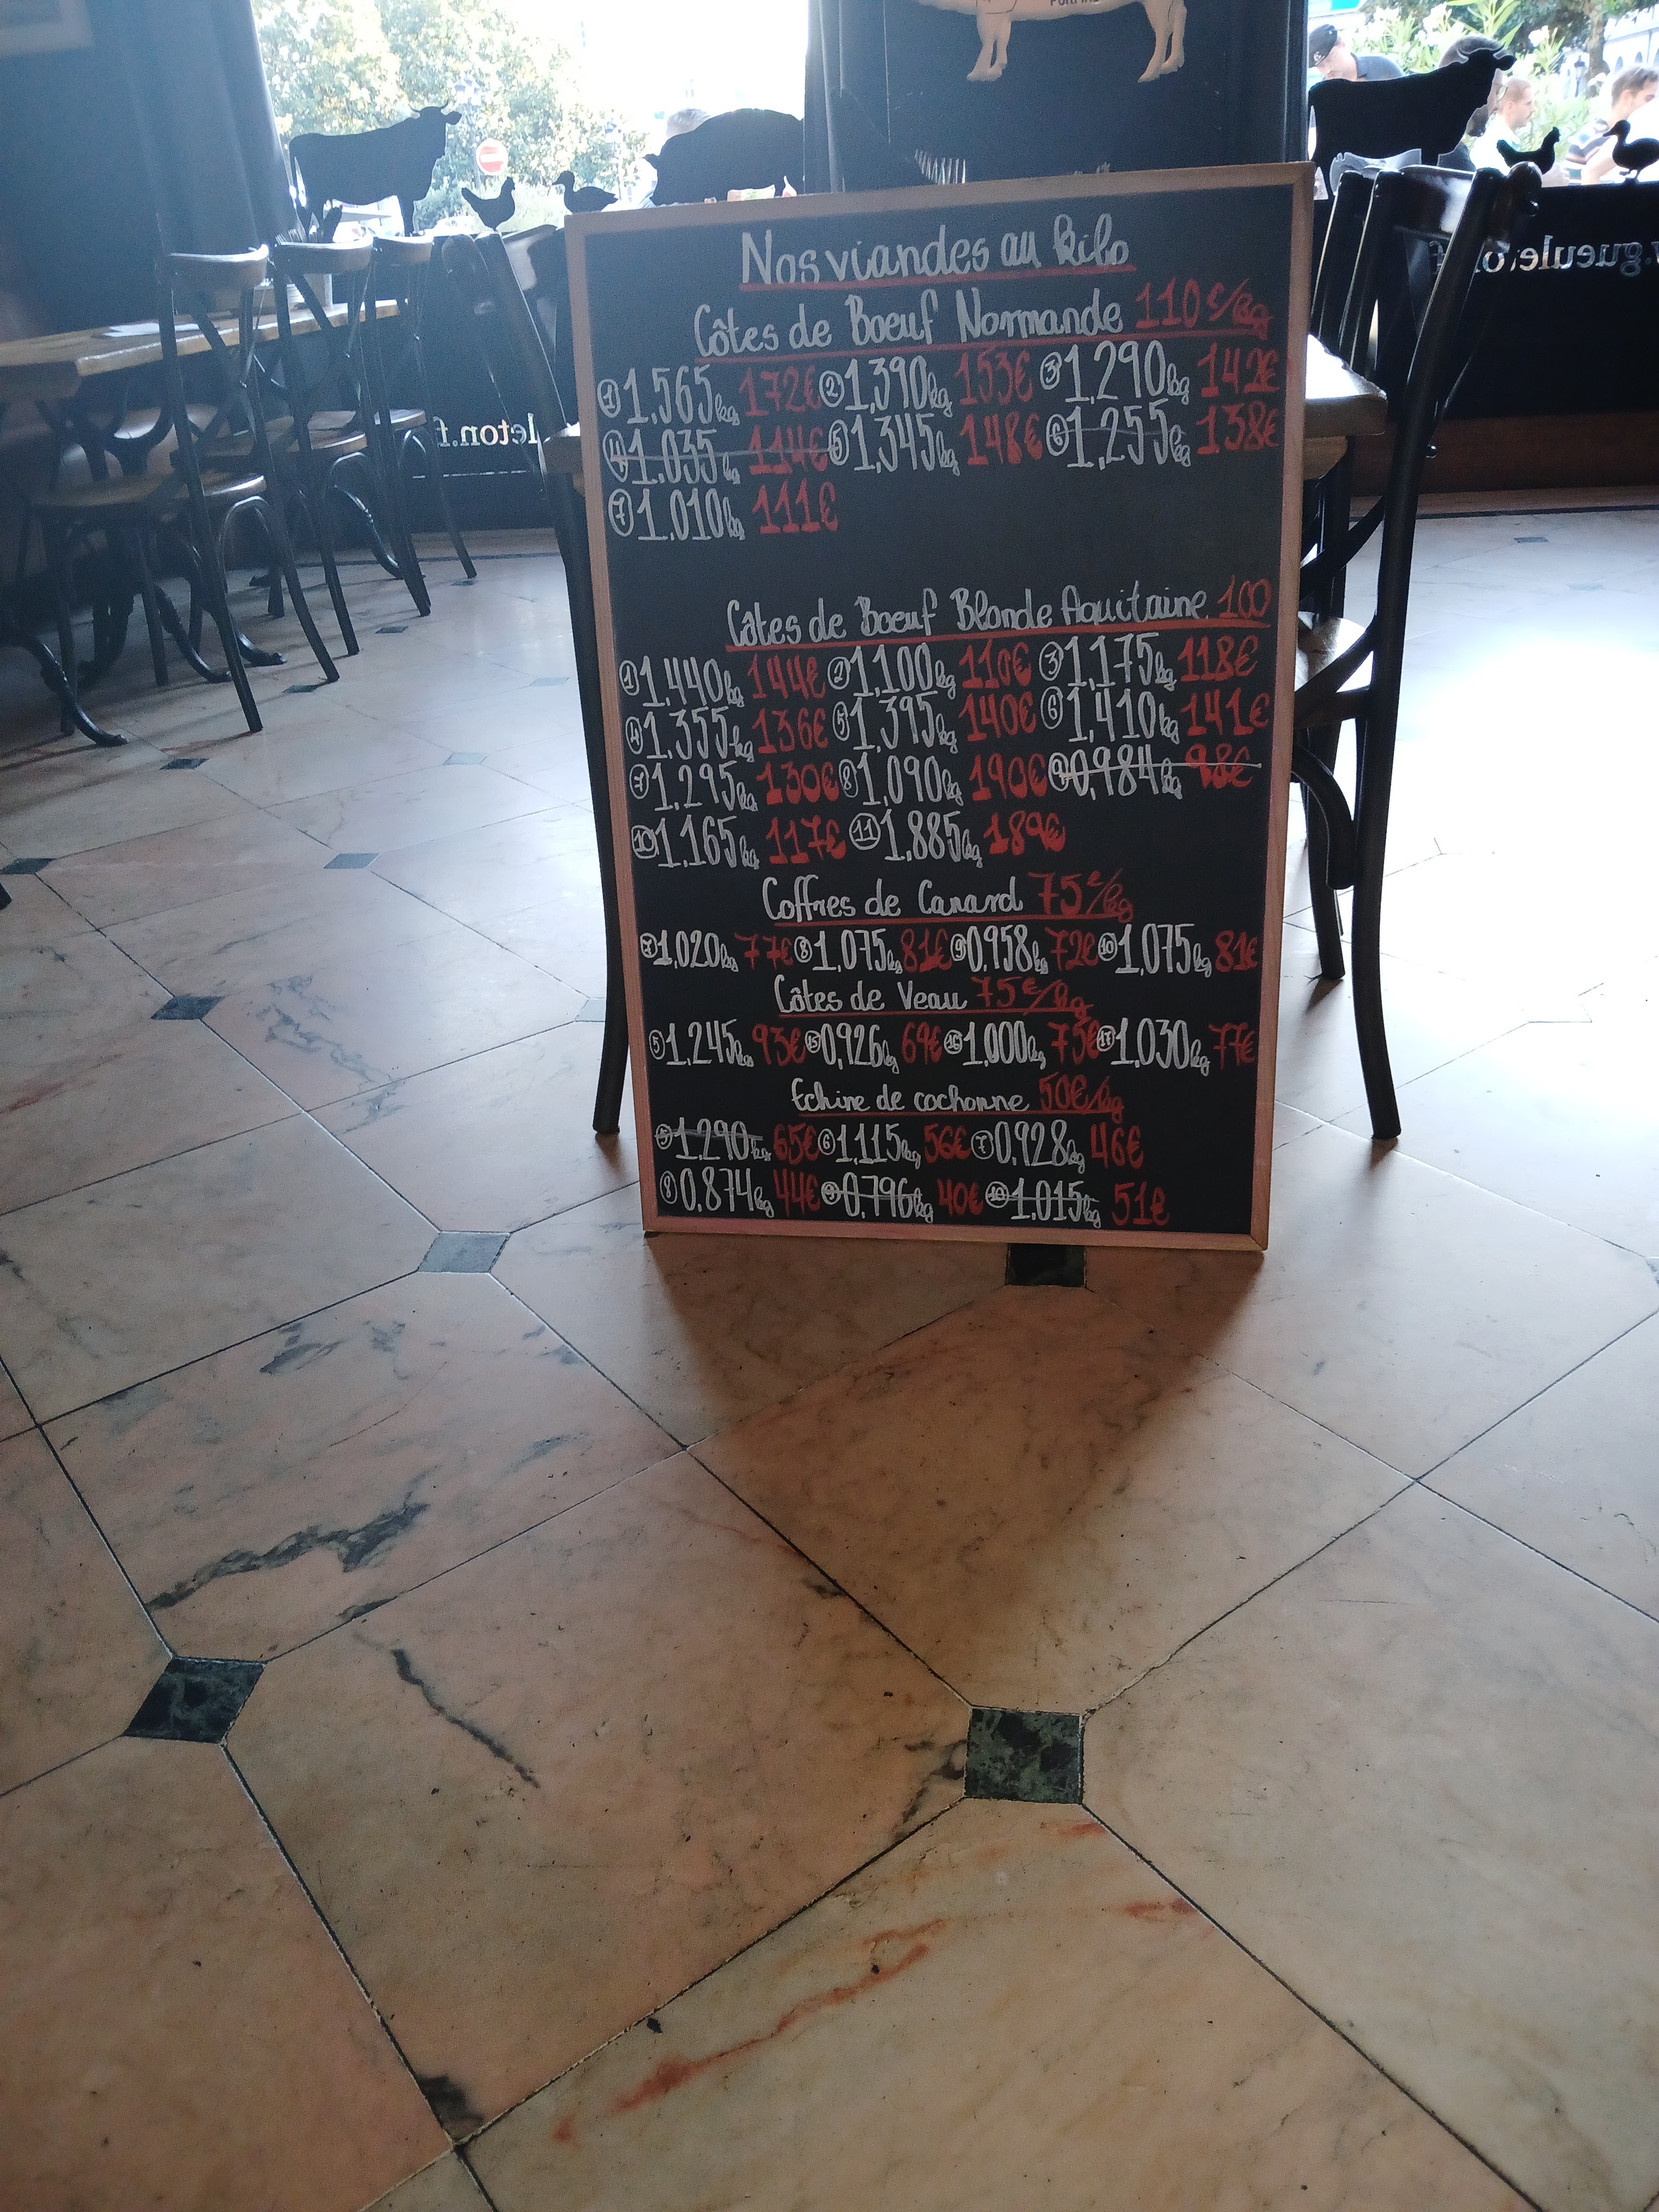 Nos viandes au kilo
Côtes de Boeuf Normande 110€/kg
① 1,565kg 172€ ② 1,390kg 153€ ③ 1,290kg 142€
④ 1,035kg 114€ ⑤ 1,345kg 148€ ⑥ 1,255kg 138€
⑦ 1,010kg 111€
Côtes de Boeuf Blonde Aquitaine 100
① 1,440kg 144€ ② 1,100kg 110€ ③ 1,175kg 118€
④ 1,355kg 136€ ⑤ 1,395kg 140€ ⑥ 1,410kg 141€
⑦ 1,295kg 130€ ⑧ 1,090kg 190€ ⑨ 0,984kg 98€
⑩ 1,165kg 117€ ⑪ 1,885kg 189€
Coffres de Canard 75€/kg
⑦ 1,020kg 77€ ⑧ 1,075kg 81€ ⑨ 0,958kg 72€ ⑩ 1,075kg 81€
Côtes de Veau 75€/kg
⑤ 1,245kg 93€ ⑮ 0,926kg 69€ ⑯ 1,000kg 75€ ⑰ 1,030kg 77€
Echine de cochonne 50€/kg
⑤ 1,290kg 65€ ⑥ 1,115kg 56€ ⑦ 0,928kg 46€
⑧ 0,874kg 44€ ⑨ 0,796kg 40€ ⑩ 1,015kg 51€
leton.f